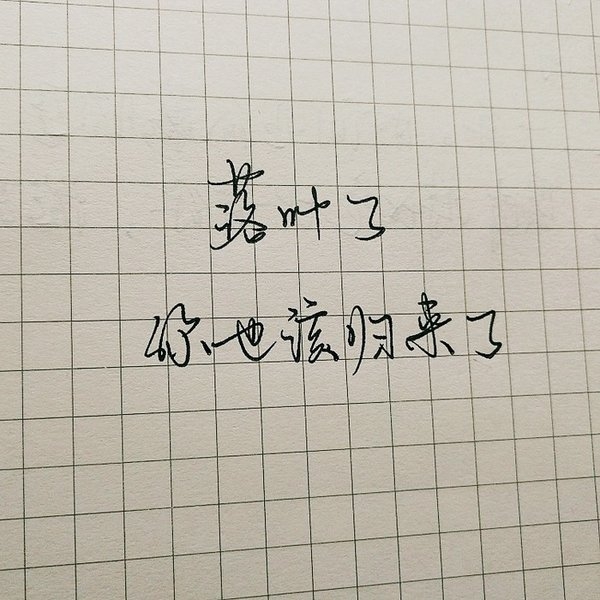 落叶了
你也该归来了